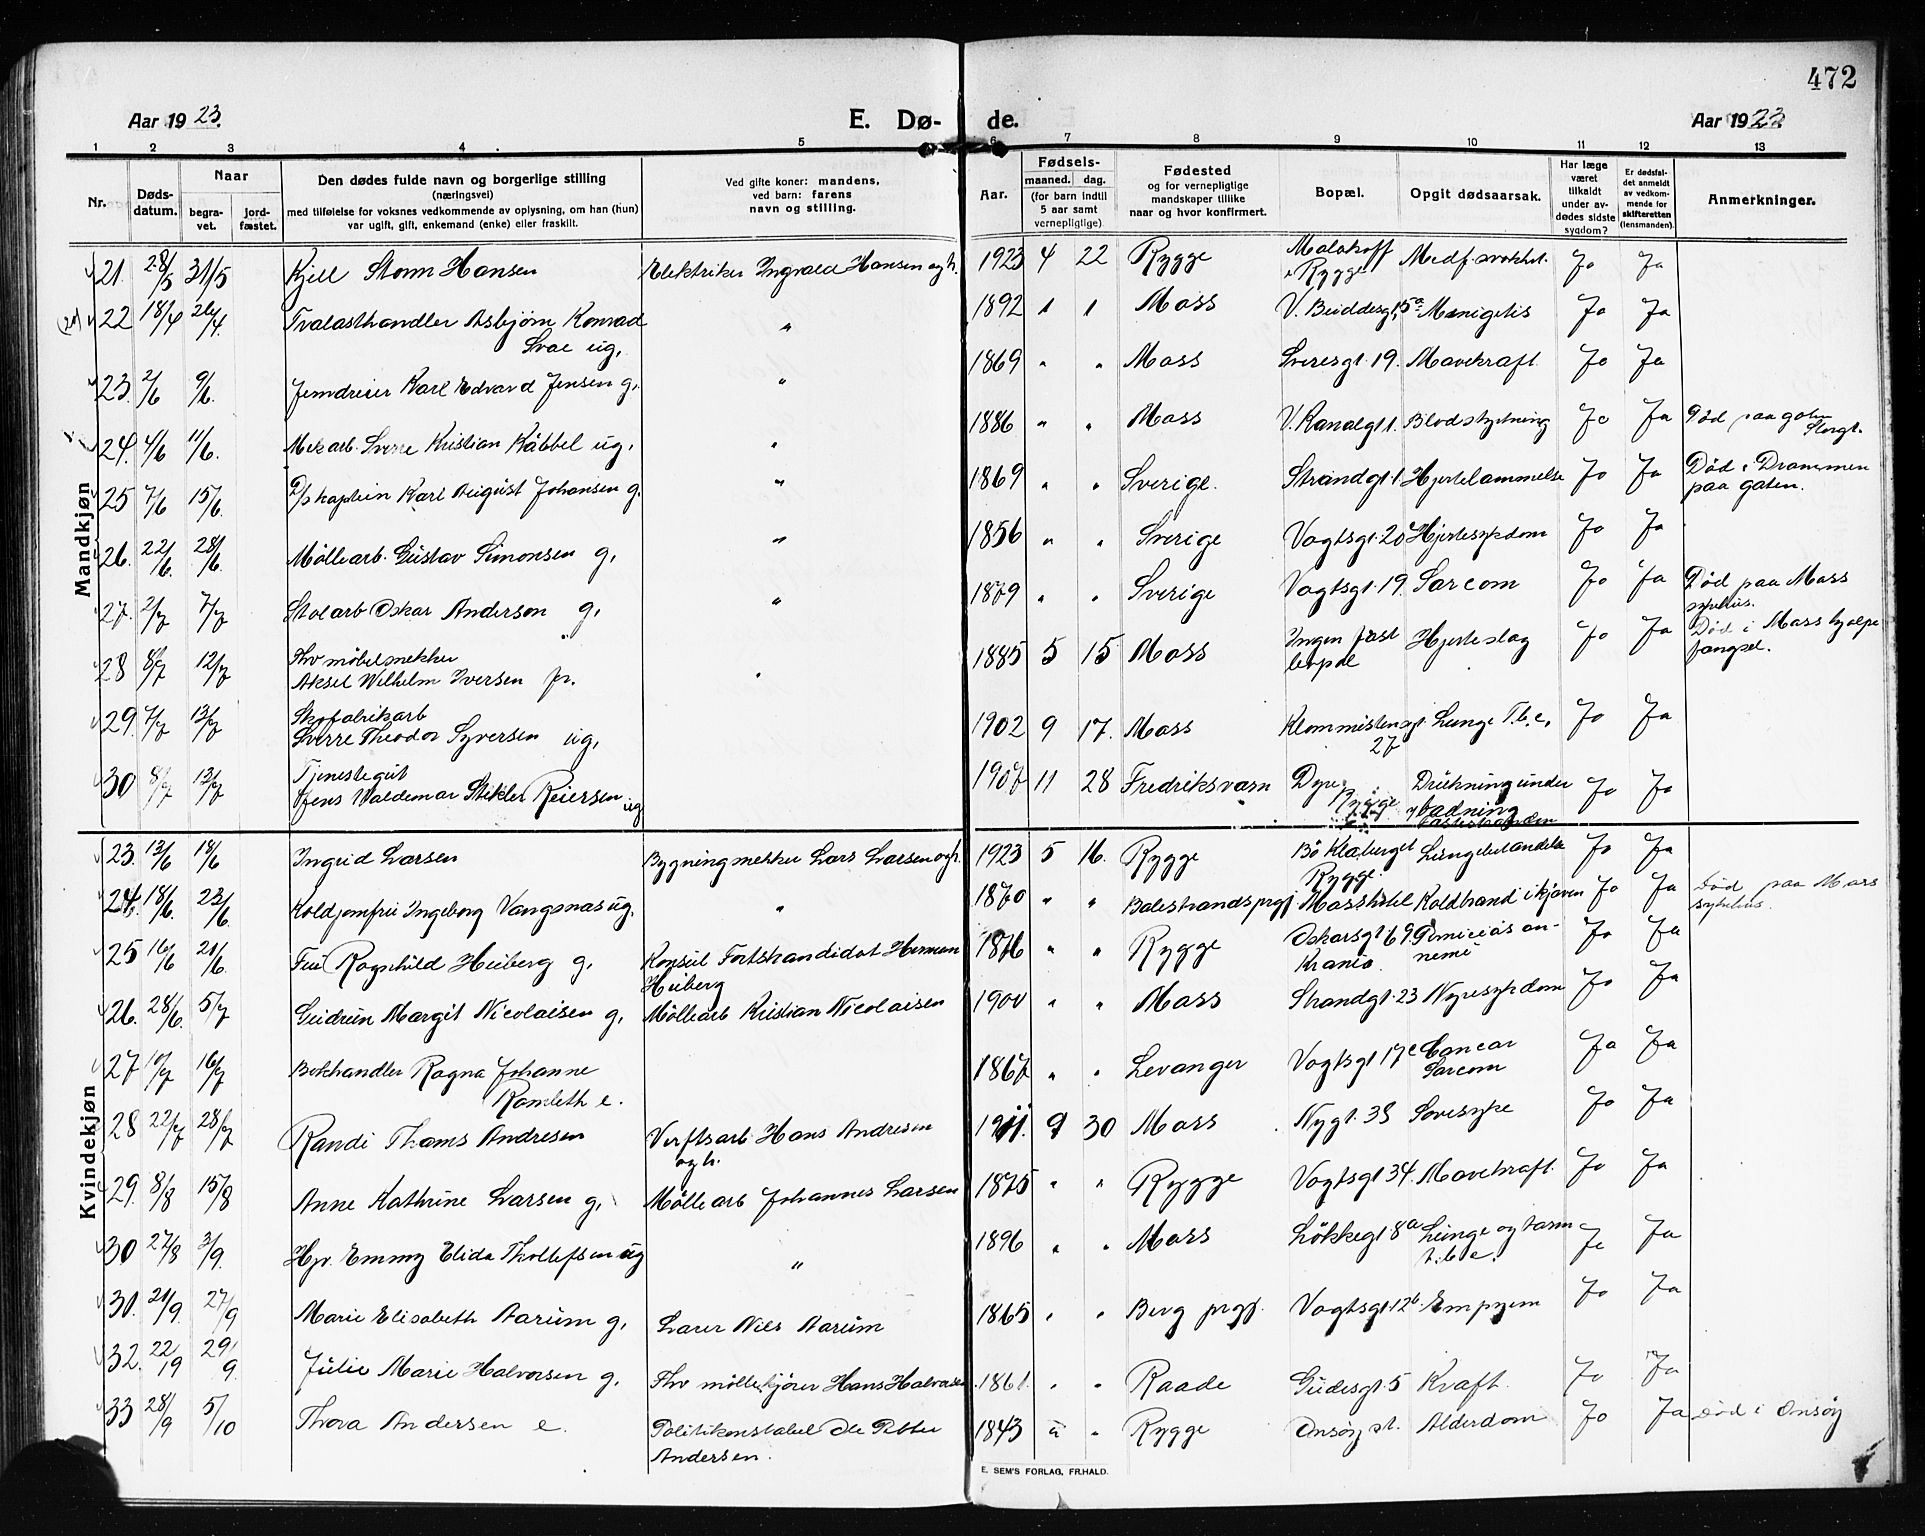 472
Aar 1923. E. Dø- de. Aar 1923.
1 2 3 4 5 6 7 8 9 10 11 12 13
Nr. Døds-datum. Naar begra-vet. jord-fæstet. Den dødes fulde navn og borgerlige stilling (næringsvei) med tilføielse for voksnes vedkommende av oplysning, om han (hun) var ugift, gift, enkemand (enke) eller fraskilt. Ved gifte koner: mandens, ved barn: farens navn og stilling. Aar. Fødsels- maaned. dag. (for barn indtil 5 aar samt vernepligtige). Fødested og for vernepligtige mandskaper tillike naar og hvor konfirmert. Bopæl. Opgit dødsaarsak. Har læge været tilkaldt under av-dødes sidste sygdom? Er dødsfal-det anmeldt av vedkom-mende for skifteretten (lensmanden). Anmerkninger.
Mandkjøn
21. 28/5 31/5 Kjell Storm Hansen Elektriker Ingvald Hansen og h. 1923 4 22 Rygge Malakoff i Rygge Medf. svakhet. Ja Ja
22 18/4 26/4. Trælasthandler Asbjørn Konrad Svae ug. " 1892 " " Moss V. Buddesgt. 5a Menigitis Ja Ja
23. 2/6 9/6. Jerndreier Karl Edvard Jensen g. " 1869 " " Moss Sverresgt. 19. Mavekraft. Ja Ja
24. 4/6 11/6. Mek arb. Sverre Kristian Käbbel ug. " 1886 " " Moss V. Kanalgt. 1. Blodstyrtning Ja Ja Død paa gaten Storgt.
25 7/6 15/6. D/s kaptein Karl August Johansen g. " 1869 " " Sverige. Strandgt. 1 Hjertelammelse Ja Ja Død i Drammen paa gaten.
26. 22/6. 28/6. Møllearb. Gustav Simonsen g. " 1856 " " Sverige Vogtsgt. 20 Hjertesykdom Ja Ja
27. 2/7 7/7 Stolarb Oskar Anderson g. " 1879 " " Sverige Vogtsgt. 19. Sarcom Ja Ja Død paa Moss sykehus.
28 8/7 12/7 Fhv møbelsnekker Aksel Wilhelm Iversen fr. " 1885 5 15 Moss Ingen fast bopæl Hjerteslag Ja Ja Død i Moss hjælpefængsel.
29. 7/7 13/7 Skofabrikarb Sverre Theodor Syversen ug. 1902 9 17. Moss Klommestensgt 27 Lunge T.b.c. Ja Ja
30 8/7 13/7 Tjenestegut Jens Valdemar Stikler Reiersen ug 1907 11 28 Fredriksværn Dyre, Rygge Drukning under badning Ja Ja
Kvindekjøn
23. 13/6 18/6 Ingrid Larsen Bygningsnekker Lars Larsen og h. 1923 5 16. Rygge Bö Klaberget Rygge. Lungebetændelse Ja Ja
24. 18/6. 23/6. Koldjomfru Ingeborg Vangsnæs ug. " 1870 " " Balestrands prgj Moss hotel Koldbrand i kjæven Ja Ja Død paa Moss sykehus.
25 16/6 21/6. Fru Ragnhild Heiberg g. Konsul Forstkandidat Herman Heiberg 1876 " " Rygge Oskarsgt 69 Krania. Perniciøs anemi Ja Ja
26. 28/6. 5/7 Gudrun Margit Nicolaisen g. Møllearb Kristian Nicolaisen 1900 " " Moss Strandgt. 23 Nyresykdom Ja Ja
27 10/7 16/7 Bokhandler Ragna Johanne Ramleth e. 1867 " " Levanger Vogtsgt 17c Cancer Sarcom Ja Ja
28 22/7 28/7 Randi Thoms Andresen Verftsarb. Hans Andresen og h. 1911. 9 30 Moss Nygt. 38 Sovesyke Ja Ja
29. 8/8 15/8 Anne Kathrine Larsen g. Møllearb Johannes Larsen 1875 " " Rygge Vogtsgt 34. Mavekraft. Ja Ja
30 27/8 3/9. Hjv. Emmy Elida Thollefsen ug " 1896 " " Moss Løkkegt 8a Lunge og tarm t.b.c. Ja Ja
31. 21/9. 27/9 Marie Elisabeth Aarum g. Lærer Nils Aarum 1865 " " Berg prgj. Vogtsgt. 12b. Empyem Ja Ja
32. 22/9 29/9. Julie Marie Halvorsen g. Fhv møllekjører Hans Halvorsen 1861. " " Raade Gudesgt. 5 Kraft. Ja Ja
33 28/9 5/10 Thora Andersen e. Politikonstabel Ole Petter Andersen. 1843 " " Rygge Onsøy st. Alderdom Ja Ja Død i Onsøy
E. SEM'S FORLAG, FR.HALD.